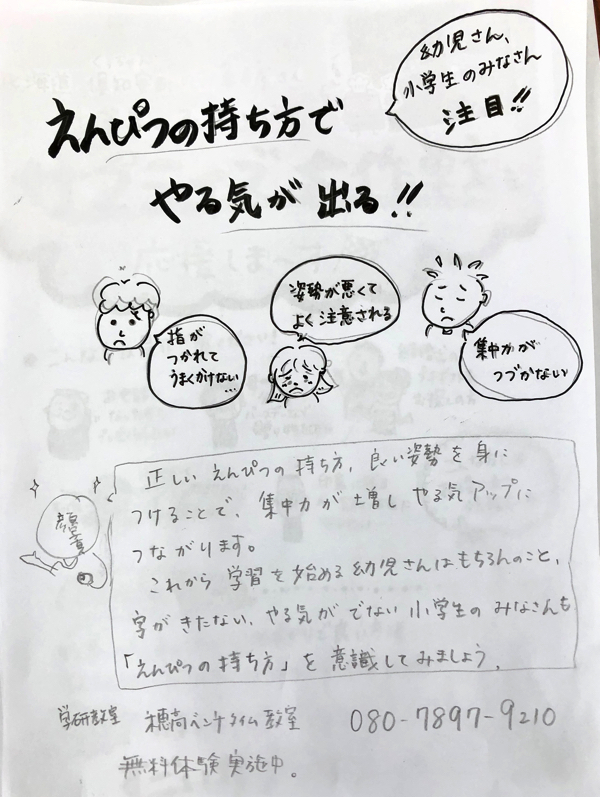 幼児さん、
小学生のみなさん
注目!!
えんぴつの持ち方で
やる気が出る!!
指が
つかれて
うまくかけない…
姿勢が悪くて
よく注意される
集中力が
つづかない
正しいえんぴつの持ち方、良い姿勢を身に
つけることで、集中力が増しやる気アップに
つながります。
これから学習を始める幼児さんはもちろんのこと、
字がきたない、やる気がでない小学生のみなさんも
「えんぴつの持ち方」を意識してみましょう。
学研教室 穂高ベンチタイム教室 080-7897-9210
無料体験実施中。